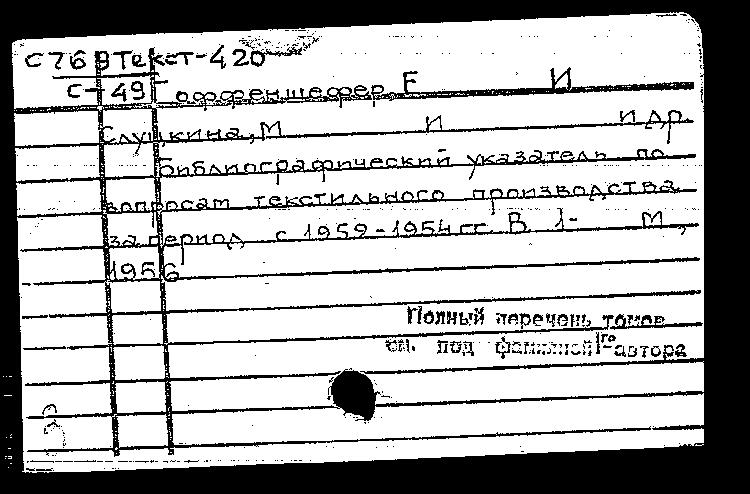 С76 9 Текст-420
С-49 Гоффеншефер, Е И
Слуцкина, М И и др.
Библиографический указатель по
вопросам текстильного производства
за период с 1959-1954 гг. В. 1- М,
1956
Полный перечень томов
см. под фамилией 1го автора